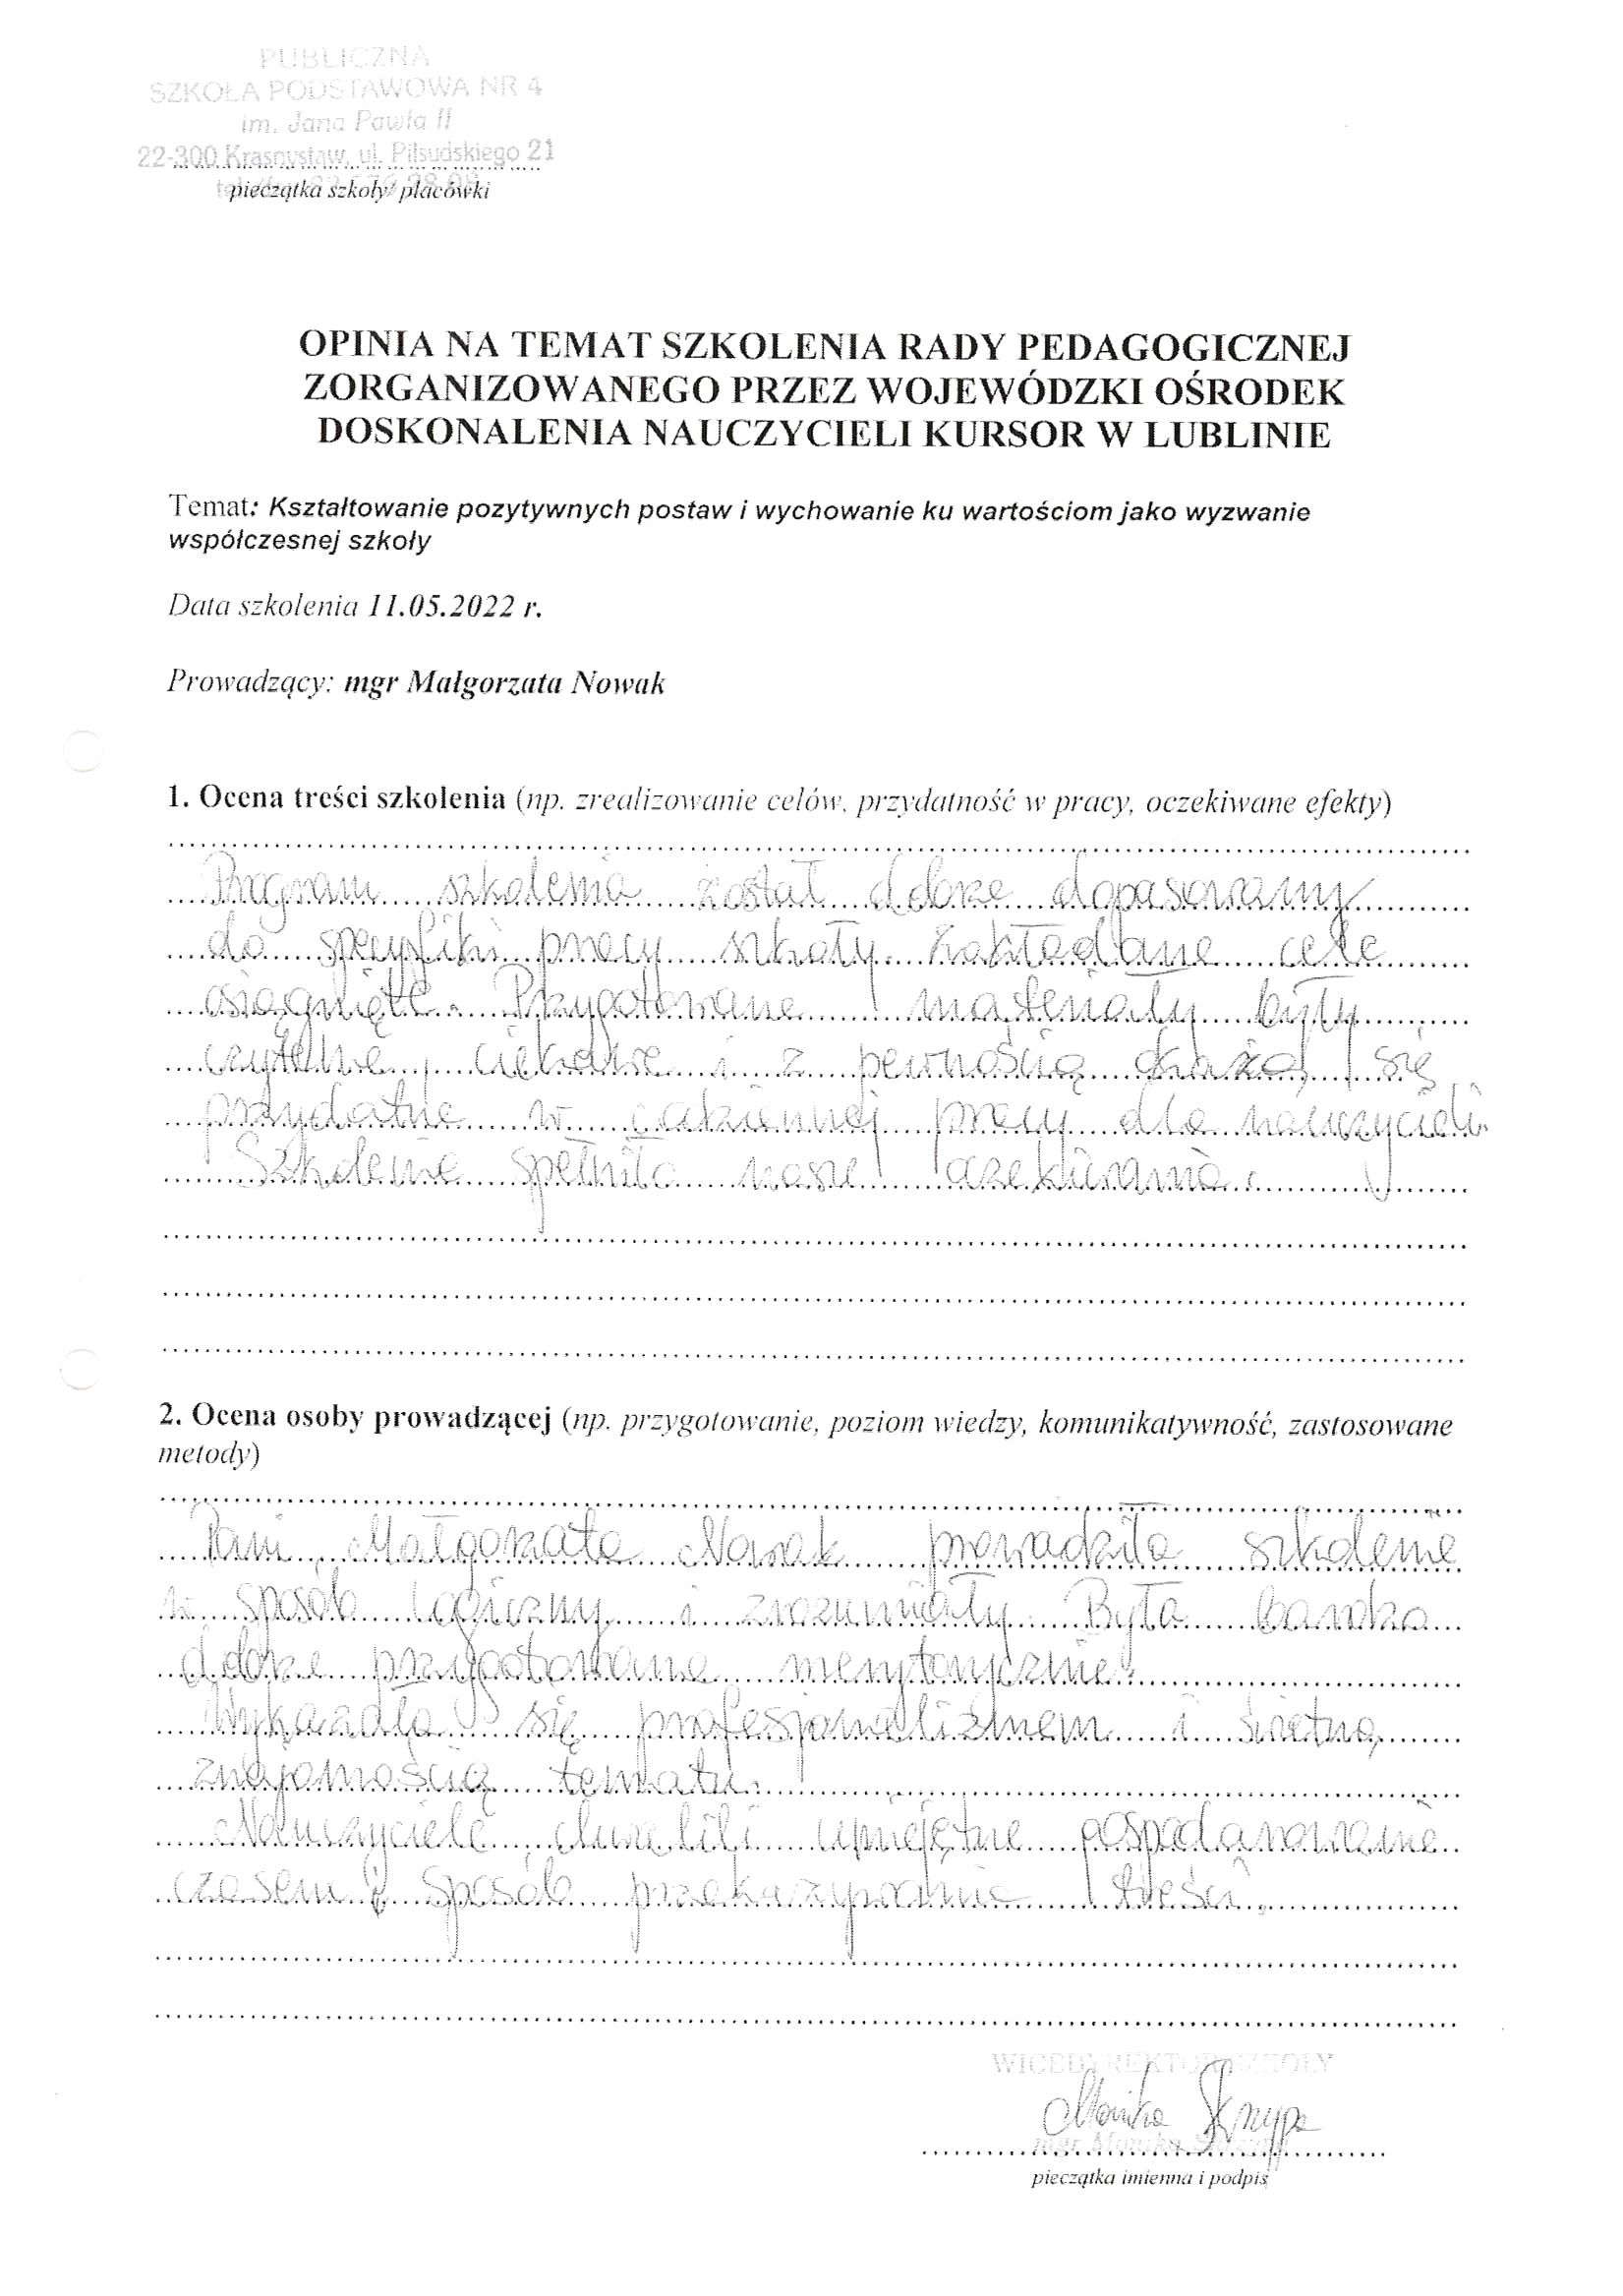 PUBLICZNA
SZKOŁA PODSTAWOWA NR 4
im. Jana Pawła II
22-300 Krasnystaw, ul. Piłsudskiego 21
pieczątka szkoły/ placówki
OPINIA NA TEMAT SZKOLENIA RADY PEDAGOGICZNEJ
ZORGANIZOWANEGO PRZEZ WOJEWÓDZKI OŚRODEK
DOSKONALENIA NAUCZYCIELI KURSOR W LUBLINIE
Temat: Kształtowanie pozytywnych postaw i wychowanie ku wartościom jako wyzwanie
współczesnej szkoły
Data szkolenia 11.05.2022 r.
Prowadzący: mgr Małgorzata Nowak
1. Ocena treści szkolenia (np. zrealizowanie celów, przydatność w pracy, oczekiwane efekty)
Program szkolenia został dobrze dopasowany
do specyfiki pracy szkoły. Zakładane cele
osiągnięte. Przygotowane materiały były
czytelne, ciekawe i z pewnością okażą się
przydatne w codziennej pracy dla nauczycieli.
Szkolenie spełniło nasze oczekiwania.
2. Ocena osoby prowadzącej (np. przygotowanie, poziom wiedzy, komunikatywność, zastosowane
metody)
Pani Małgorzata Nowak prowadziła szkolenie
w sposób logiczny i zrozumiały. Była bardzo
dobrze przygotowana merytorycznie.
Wykazała się profesjonalizmem i świetną
znajomością tematu.
Nauczyciele chwalili umiejętne gospodarowanie
czasem i sposób przekazywania treści.
WICEDYREKTOR SZKOŁY
Monika Skrzypa
pieczątka imienna i podpis